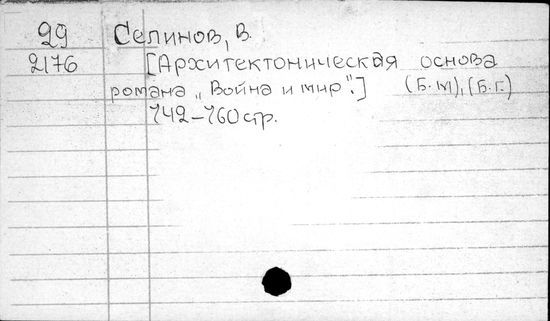 29 Селинов, В.
2176 [Архитектоническая основа
романа „Война и мир".] (Б.м), (Б.г.)
142-160стр.